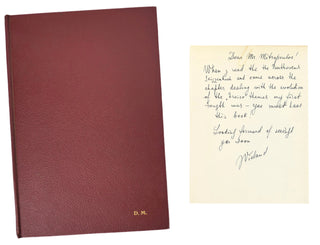 D. M.
Dear Mr. Mitropoulos!
When I read the the Beethoven
and came across the
chapter dealing with the evolution
of the Eroica themes my first
thought was - you must have
this book!
Looking forward of seeing
you soon